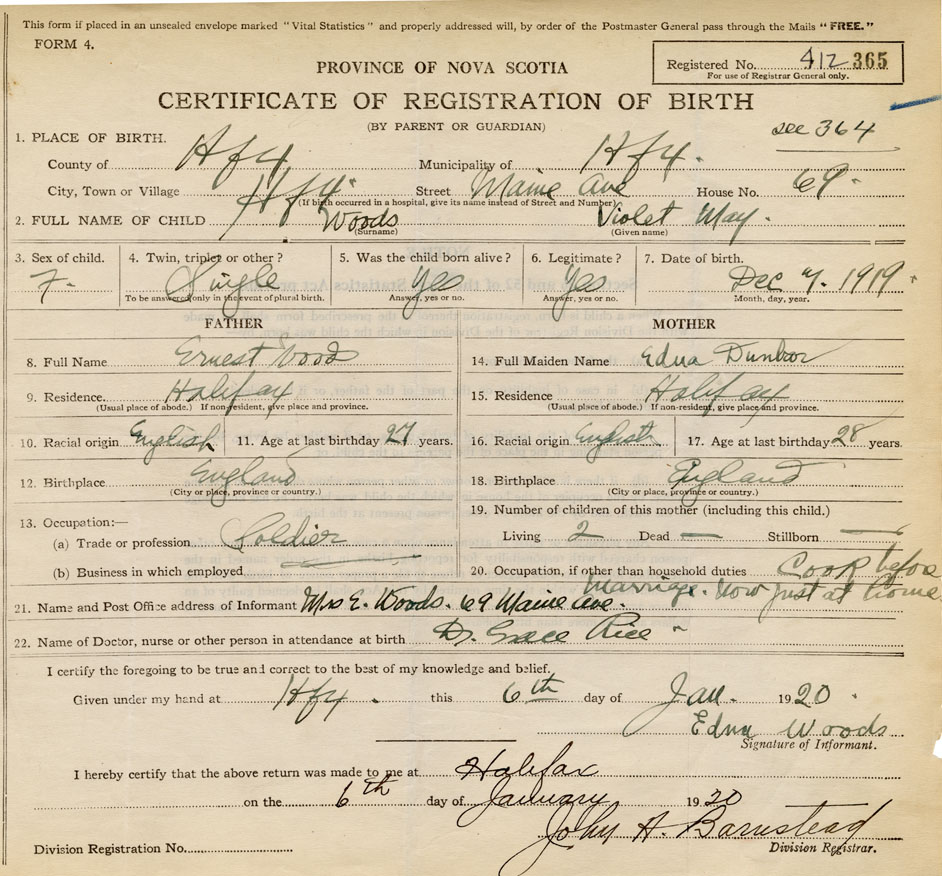 This form if placed in an unsealed envelope marked "Vital Statistics" and properly addressed will, by order of the Postmaster General pass through the Mails "FREE."
FORM 4.
Registered No. 412 365
For use of Registrar General only.
PROVINCE OF NOVA SCOTIA
CERTIFICATE OF REGISTRATION OF BIRTH
(BY PARENT OR GUARDIAN)
see 364
1. PLACE OF BIRTH.
County of Hfx Municipality of Hfx.
City, Town or Village Hfx. Street Maine Ave House No. 69.
(If birth occurred in a hospital, give its name instead of Street and Number)
2. FULL NAME OF CHILD Woods Violet May.
(Surname) (Given name)
3. Sex of child. 4. Twin, triplet or other? 5. Was the child born alive? 6. Legitimate? 7. Date of birth.
F. Single Yes Yes Dec 7. 1919.
To be answered only in the event of plural birth. Answer, yes or no. Answer, yes or no. Month, day, year.
FATHER MOTHER
8. Full Name Ernest Wood 14. Full Maiden Name Edna Dunbar
9. Residence. Halifax 15. Residence Halifax
(Usual place of abode.) If non-resident, give place and province. (Usual place of abode.) If non-resident, give place and province.
10. Racial origin English 11. Age at last birthday 27 years. 16. Racial origin English 17. Age at last birthday 28 years.
12. Birthplace England 18. Birthplace England
(City or place, province or country.) (City or place, province or country.)
13. Occupation:— 19. Number of children of this mother (including this child.)
(a) Trade or profession Soldier Living 2 Dead — Stillborn —
(b) Business in which employed 20. Occupation, if other than household duties Cook before
Marriage. Now just at home.
21. Name and Post Office address of Informant Mrs E. Woods. 69 Maine Ave.
22. Name of Doctor, nurse or other person in attendance at birth Dr. Grace Rice
I certify the foregoing to be true and correct to the best of my knowledge and belief.
Given under my hand at Hfx. this 6th day of Jan. 1920.
Edna Woods
Signature of Informant.
I hereby certify that the above return was made to me at Halifax
on the 6th day of January 1920
John H. Barnstead
Division Registration No. Division Registrar.